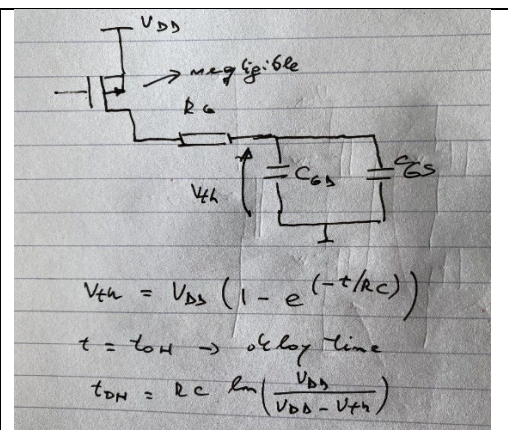 VDD
negligible
RG
Vth
CGD
CGS
Vth = VDD (1 - e^(-t/RC))
t = tDH → delay time
tDH = RC ln(VDD / (VDD - Vth))